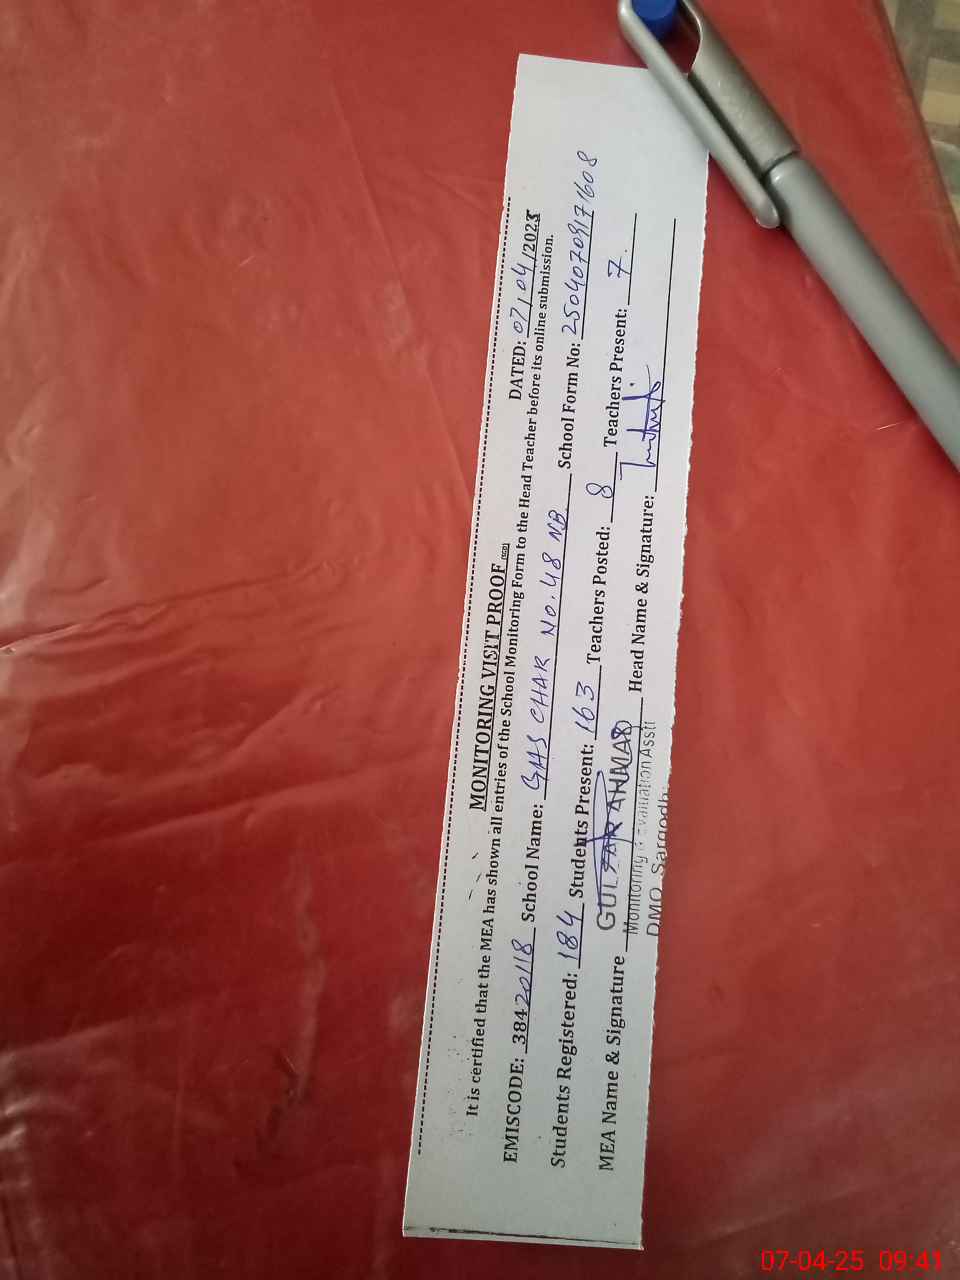 MONITORING VISIT PROOF (SED) DATED: 07/04/2025
It is certified that the MEA has shown all entries of the School Monitoring Form to the Head Teacher before its online submission.
EMISCODE: 38420118 School Name: GHS CHAK NO. 48 NB School Form No: 25040709171608
Students Registered: 184 Students Present: 163 Teachers Posted: 8 Teachers Present: 7.
MEA Name & Signature GULZAR AHMAD Head Name & Signature:
Monitoring & Evaluation Assti
DMO, Sargodh
07-04-25 09:41